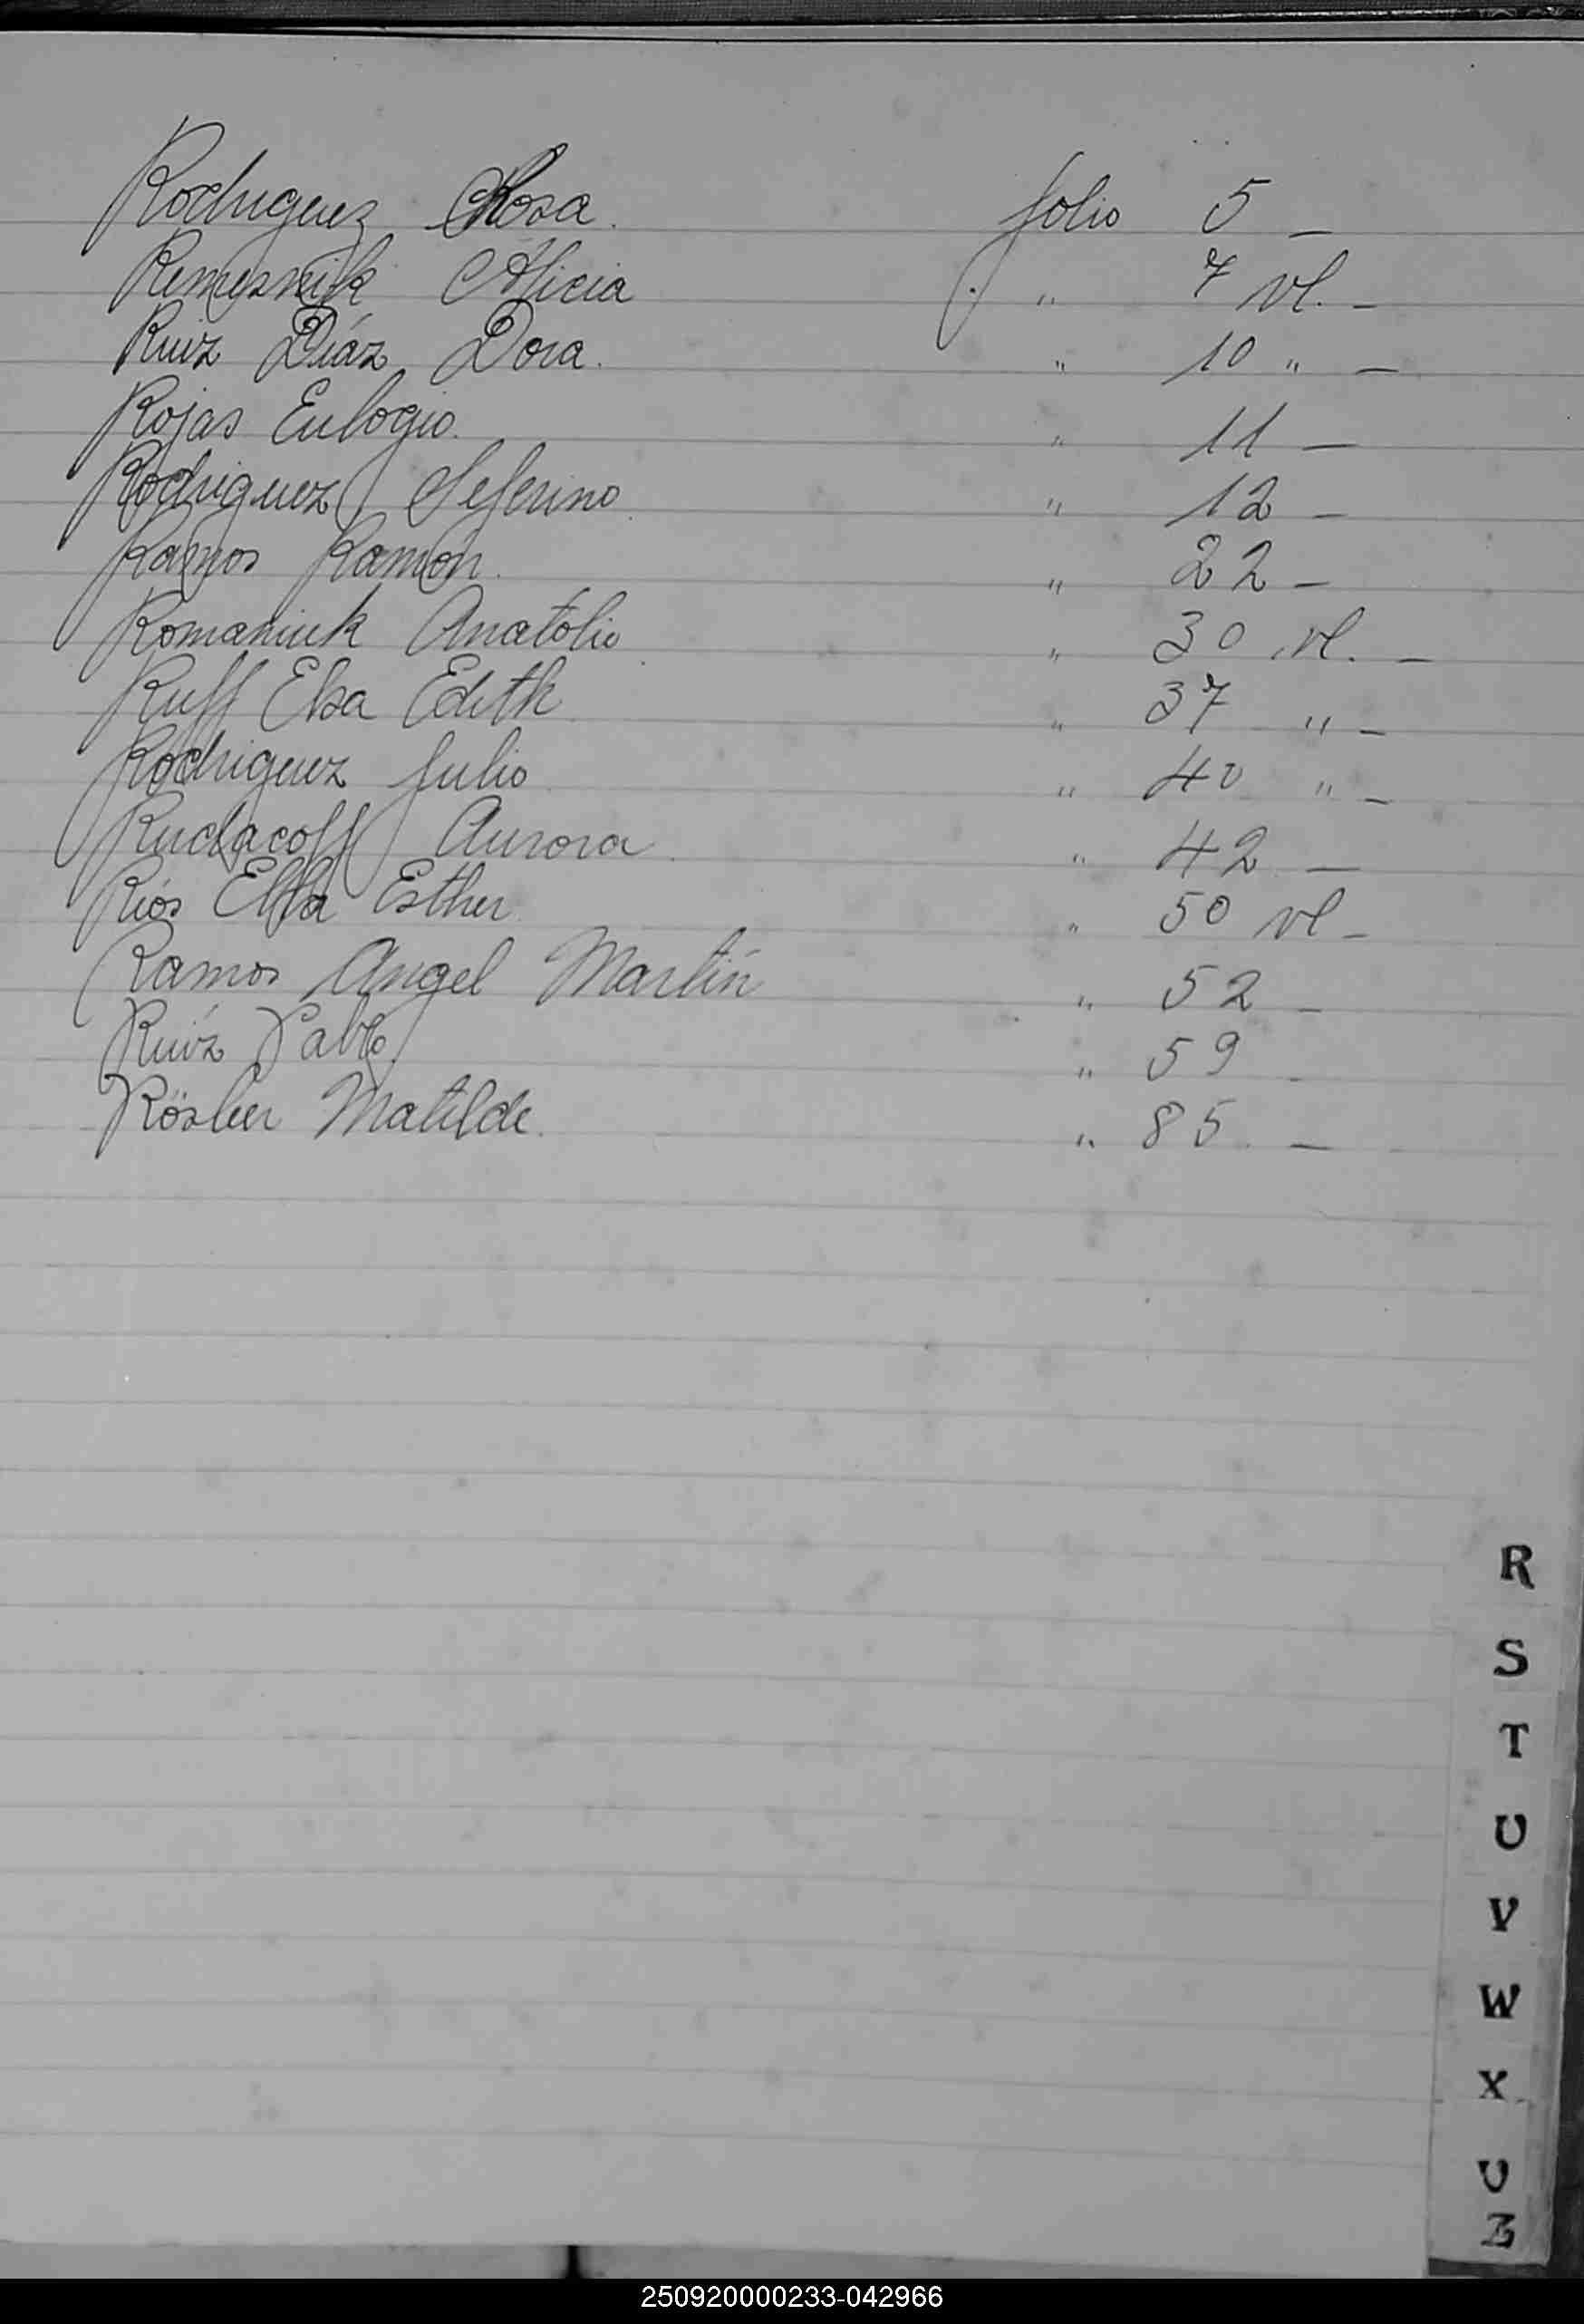 Rodriguez Rosa. folio 5 —
Remesnik Alicia " 7 vl. —
Ruiz Díaz Dora. " 10 " —
Rojas Eulogio. " 11 —
Rodriguez Seferino. " 12 —
Ramos Ramón. " 22 —
Romaniuk Anatolio. " 30 vl. —
Ruff Elsa Edith " 37 " —
Rodriguez Julio. " 40 " —
Rudacoff Aurora. " 42 —
Ríos Elba Esther. " 50 vl —
Ramos Angel Martín " 52 —
Ruíz Pablo. " 59 —
Rösler Matilde. " 85 —
R
S
T
U
V
W
X
U
Z
250920000233-042966